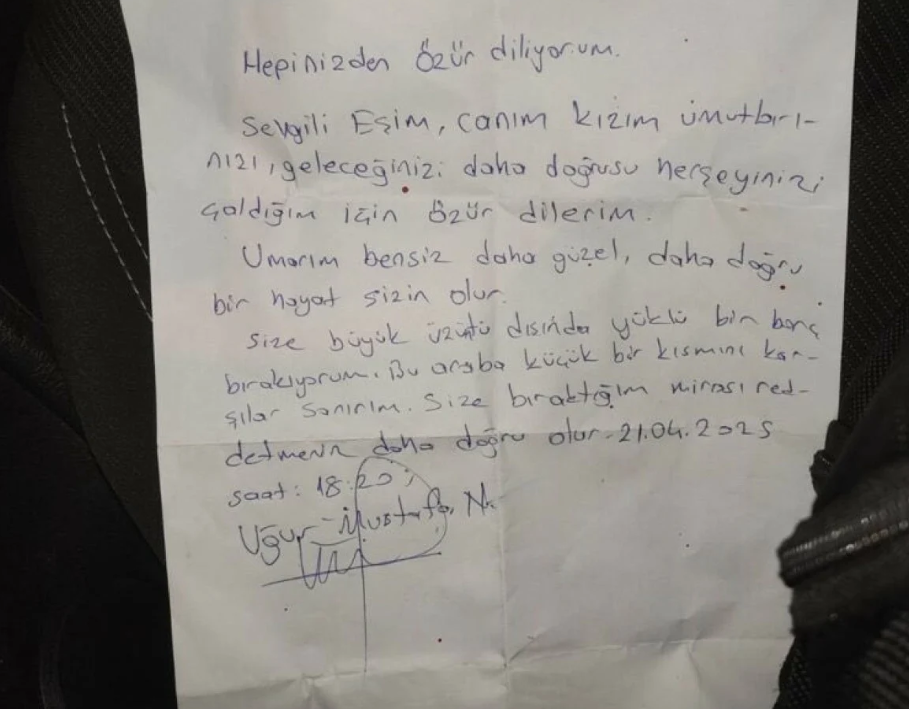 Hepinizden Özür diliyorum.
Sevgili Eşim, canım kızım ümutları-
nızı, geleceğinizi daha doğrusu herşeyinizi
çaldığım için özür dilerim.
Umarım bensiz daha güzel, daha doğru
bir hayat sizin olur.
Size büyük üzüntü dışında yüklü bir borç
bırakıyorum. Bu araba küçük bir kısmını kar-
şılar sanırım. Size bıraktığım mirası red-
detmeniz daha doğru olur. 21.04.2025
saat: 18:20
Uğur Mustafa N.